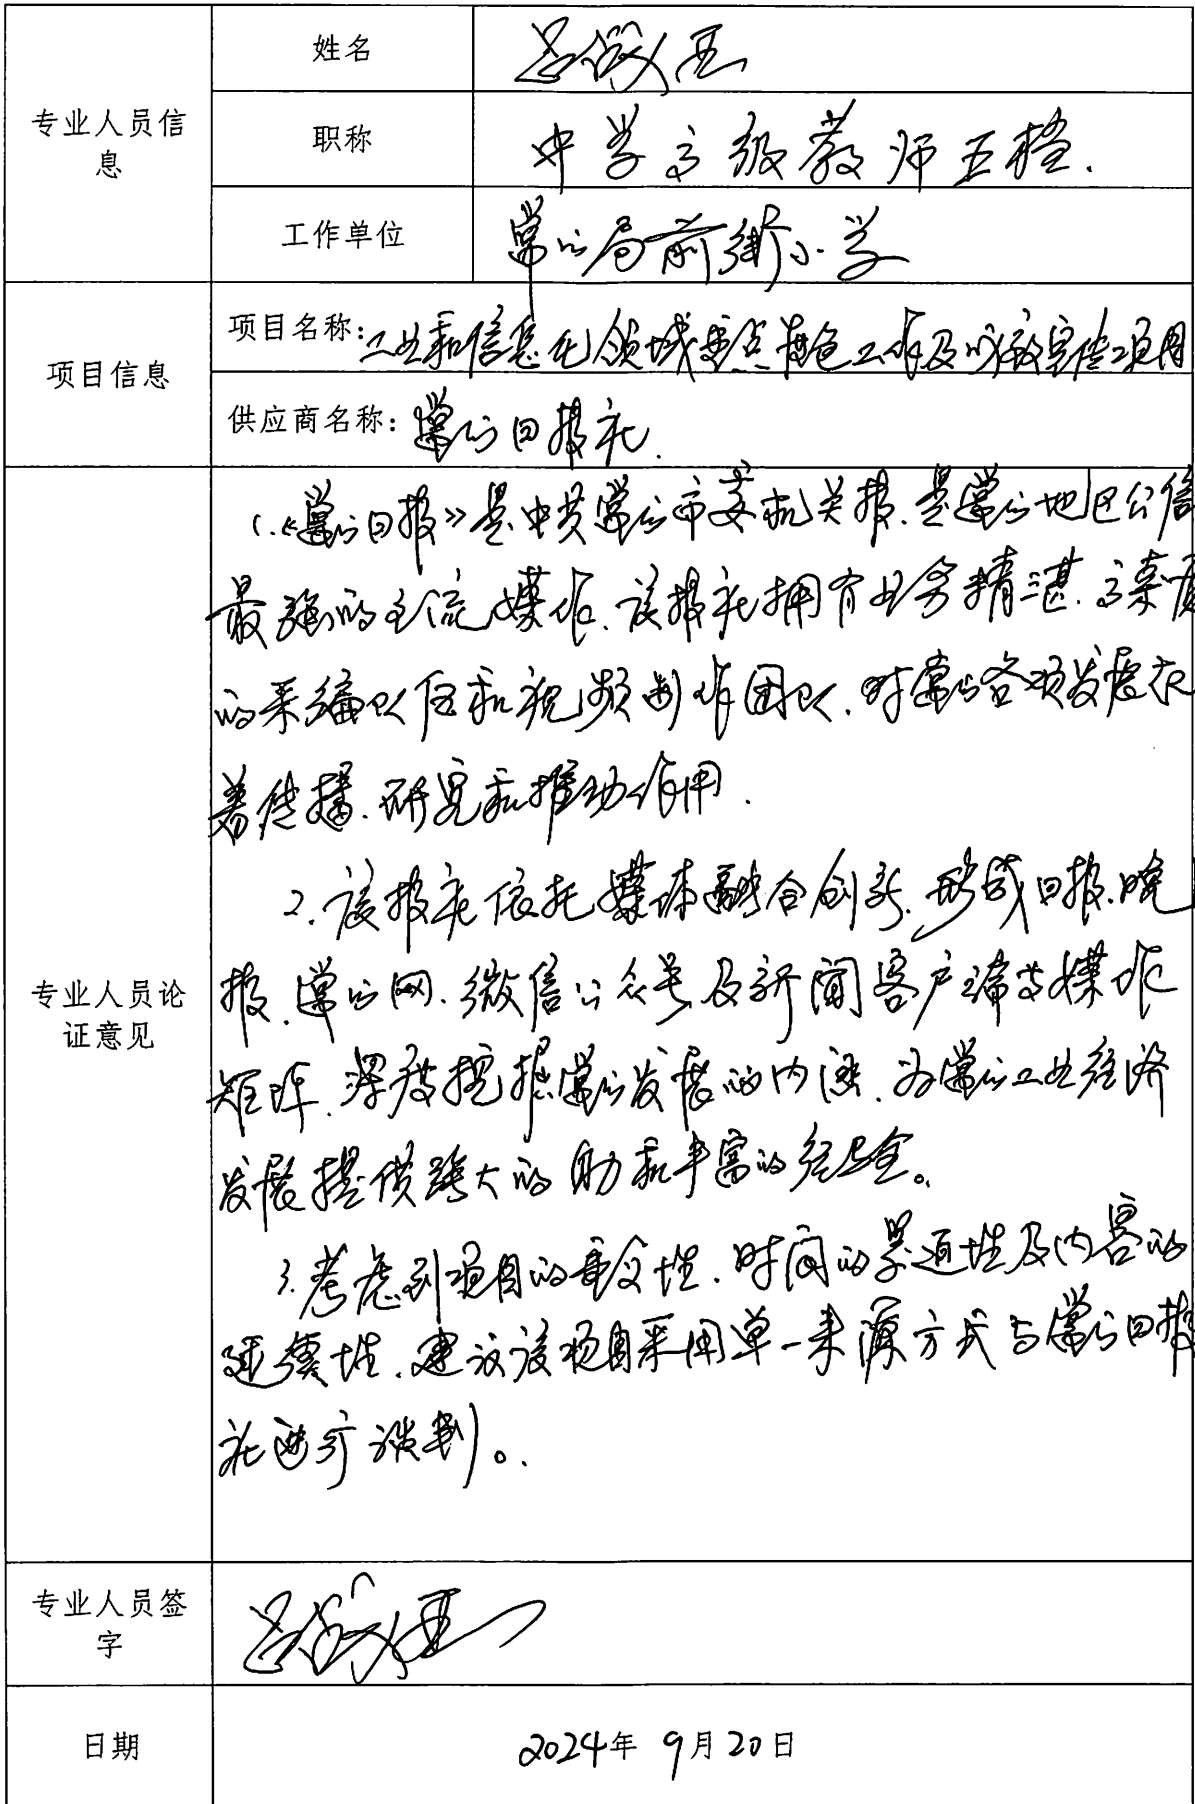 专业人员信
息
姓名
职称
中学高级教师五档.
工作单位
常州局前街小学
项目信息
项目名称:工业和信息化领域重点特色工作及成效宣传项目
供应商名称:常州日报社.
专业人员论
证意见
1.《常州日报》是中共常州市委机关报.是常州地区公信
最强的主流媒体.该报社拥有业务精湛.高素质
的采编队伍和视频制作团队.对常州各项发展起
着传播.研究和推动作用.
2.该报社依托媒体融合创新.形成日报.晚
报.常州网.微信公众号及新闻客户端等媒体
矩阵.深度挖掘常州发展的内涵.为常州工业经济
发展提供强大的助和丰富的经验。
3.考虑到项目的重要性.时间的紧迫性及内容的
延续性.建议该项目采用单一来源方式与常州日报
社进行谈判。.
专业人员签
字
日期
2024年 9月20日